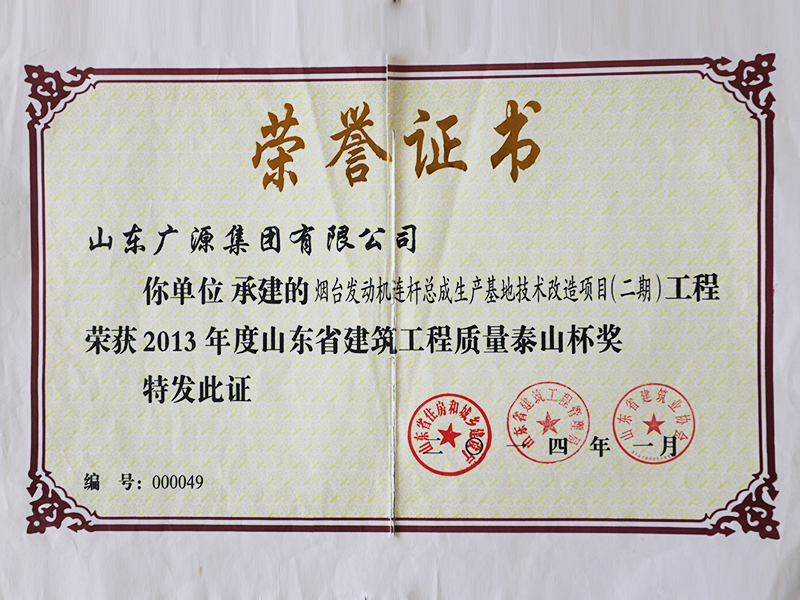 荣誉证书
山东广源集团有限公司
你单位 承建的 烟台发动机连杆总成生产基地技术改造项目(二期)工程
荣获 2013 年度山东省建筑工程质量泰山杯奖
特发此证
山东省住房和城乡建设厅
山东省建筑工程管理局
山东省建筑业协会
二〇一四年一月
编 号: 000049